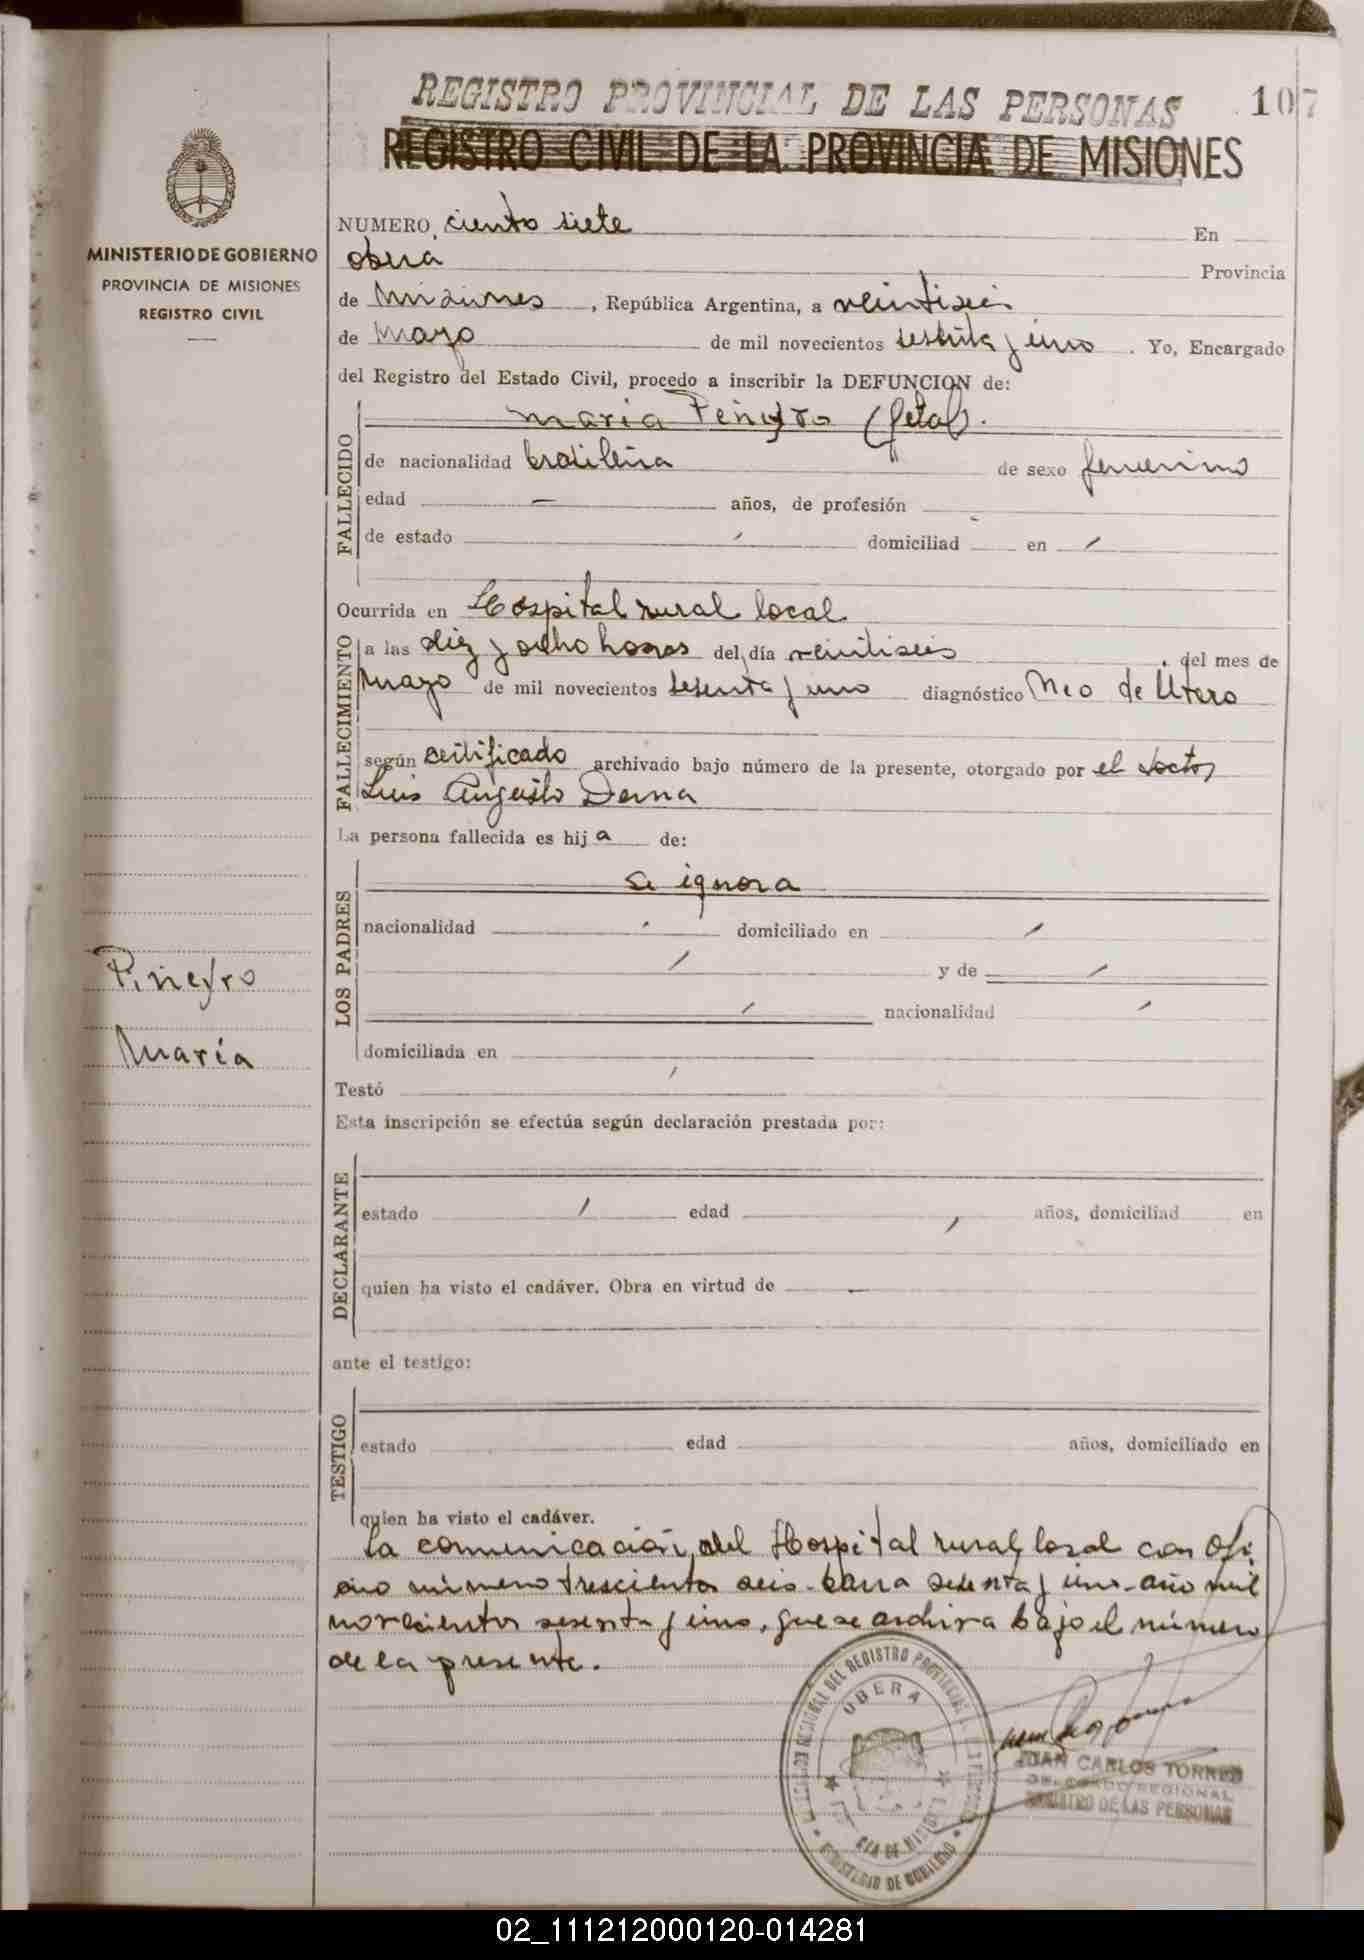 REGISTRO PROVINCIAL DE LAS PERSONAS
107
REGISTRO CIVIL DE LA PROVINCIA DE MISIONES
MINISTERIO DE GOBIERNO
PROVINCIA DE MISIONES
REGISTRO CIVIL
NUMERO ciento siete En
obera Provincia
de Misiones, República Argentina, a veintiseis
de Mayo de mil novecientos sesenta y uno. Yo, Encargado
del Registro del Estado Civil, procedo a inscribir la DEFUNCION de:
FALLECIDO
maria (fetal).
de nacionalidad brasileña de sexo femenino
edad — años, de profesión
de estado domiciliad en
Ocurrida en Hospital rural local
FALLECIMIENTO
a las diez y ocho horas del día veintiseis del mes de
Mayo de mil novecientos sesenta y uno diagnóstico Neo de Utero
según certificado archivado bajo número de la presente, otorgado por el doctor
Luis Augusto Derna
La persona fallecida es hij a de:
LOS PADRES
se ignora
nacionalidad domiciliado en
y de
nacionalidad
domiciliada en
Piñeyro
María
Testó
Esta inscripción se efectúa según declaración prestada por:
DECLARANTE
estado edad años, domiciliad en
quien ha visto el cadáver. Obra en virtud de —
ante el testigo:
TESTIGO
estado edad años, domiciliado en
quien ha visto el cadáver.
La comunicación del Hospital rural local con ofi
cio número trescientos seis-barra sesenta y uno-año mil
novecientos sesenta y uno, que se archiva bajo el número
de la presente.
DELEGACION REGIONAL DEL REGISTRO PROVINCIAL DE LAS PERSONAS
OBERA
CIA DE MISIONES
MINISTERIO DE GOBIERNO
JUAN CARLOS TORRES
DELEGADO REGIONAL
REGISTRO DE LAS PERSONAS
02_111212000120-014281